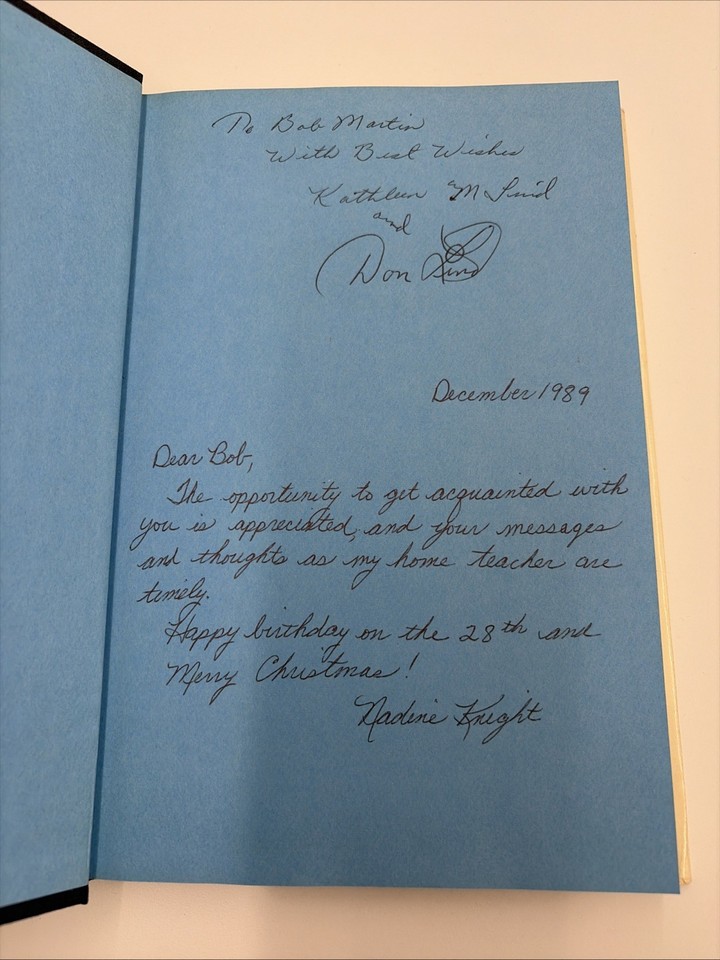 To Bob Martin
With Best Wishes
Kathleen M Lind
and
Don Lind
December 1989
Dear Bob,
The opportunity to get acquainted with
you is appreciated, and your messages
and thoughts as my home teacher are
timely.
Happy birthday on the 28th and
Merry Christmas!
Nadine Knight